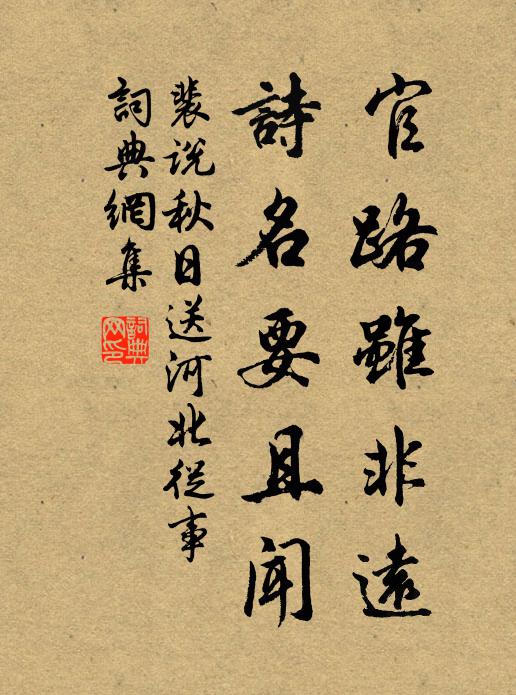 官路雖非遠
詩名要且聞
裴説秋日送河北從事
詞典網集
詞典網印